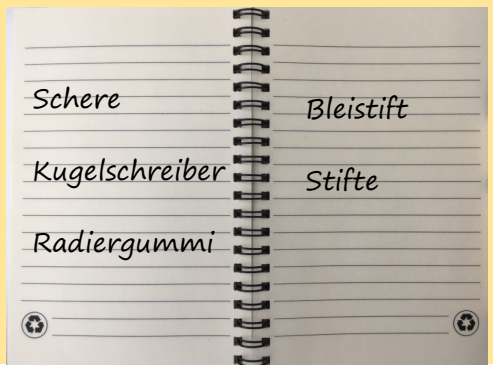 Schere
Kugelschreiber
Radiergummi
Bleistift
Stifte